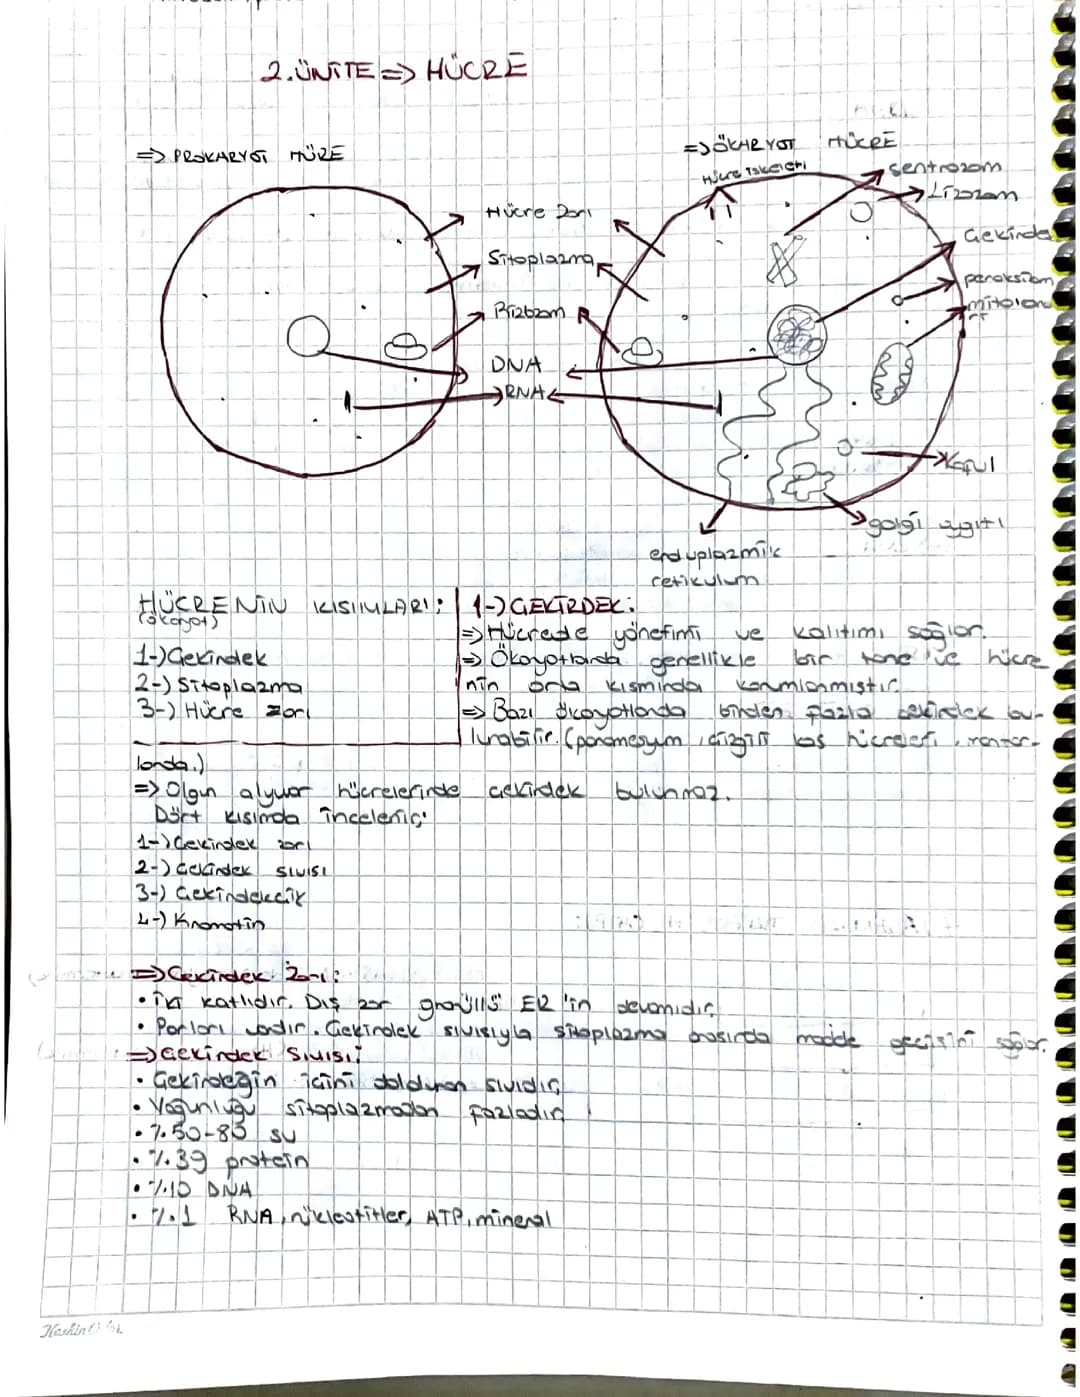 2.ÜNİTE => HÜCRE
=> PROKARYOT HÜRE
=> ÖKARYOT HÜCRE
Hücre İskeleti
Sentrozom
Lizozom
Hücre Zarı
Sitoplazma
Ribozom
DNA
RNA
Çekirde
peroksizom
mitokond
ri
Koful
golgi aygıtı
enduplazmik
retikulum
HÜCRENİN KISIMLARI:
(ökoyot)
1-) Çekirdek
2-) Sitoplazma
3-) Hücre zarı
1-) ÇEKİRDEK:
=> Hücrede yönetimi ve kalıtımı sağlar.
=> Ökoyotlarda genellikle bir tane ve hücre
nin orta kısmında konumlanmıştır.
=> Bazı ökoyotlarda birden fazla çekirdek bu-
lunabilir. (paramesyum, çizgili kas hücreleri,
larda.)
=> Olgun alyuvar hücrelerinde çekirdek bulunmaz.
Dört kısımda incelenir.
1-) Çekirdek zarı
2-) Çekirdek sıvısı
3-) Çekirdekcik
4-) Kromatin
=> Çekirdek Zarı:
• İki katlıdır. Dış zar granüllü ER'in devamıdır.
• Porları vardır. Çekirdek sıvısıyla sitoplazma arasında madde geçişini sağlar.
=> Çekirdek Sıvısı:
• Çekirdeğin içini dolduran sıvıdır.
• Yoğunluğu sitoplazmadan fazladır.
• %50-85 su
• %39 protein
• %10 DNA
• %1 RNA, nükleotitler, ATP, mineral